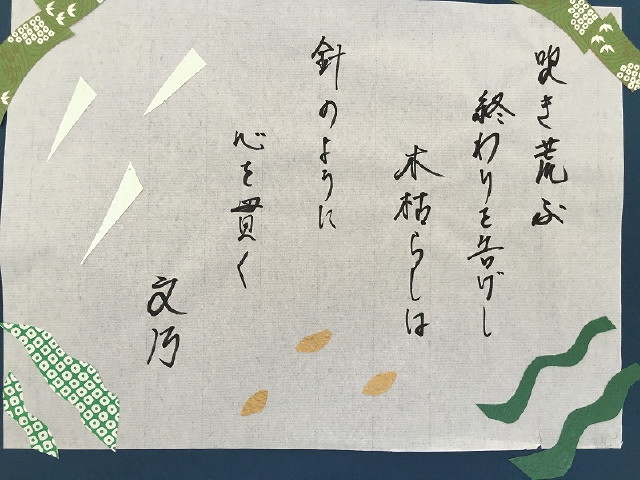 吹き荒ぶ
終わりを告げし
木枯らしは
針のように
心を貫く
文乃